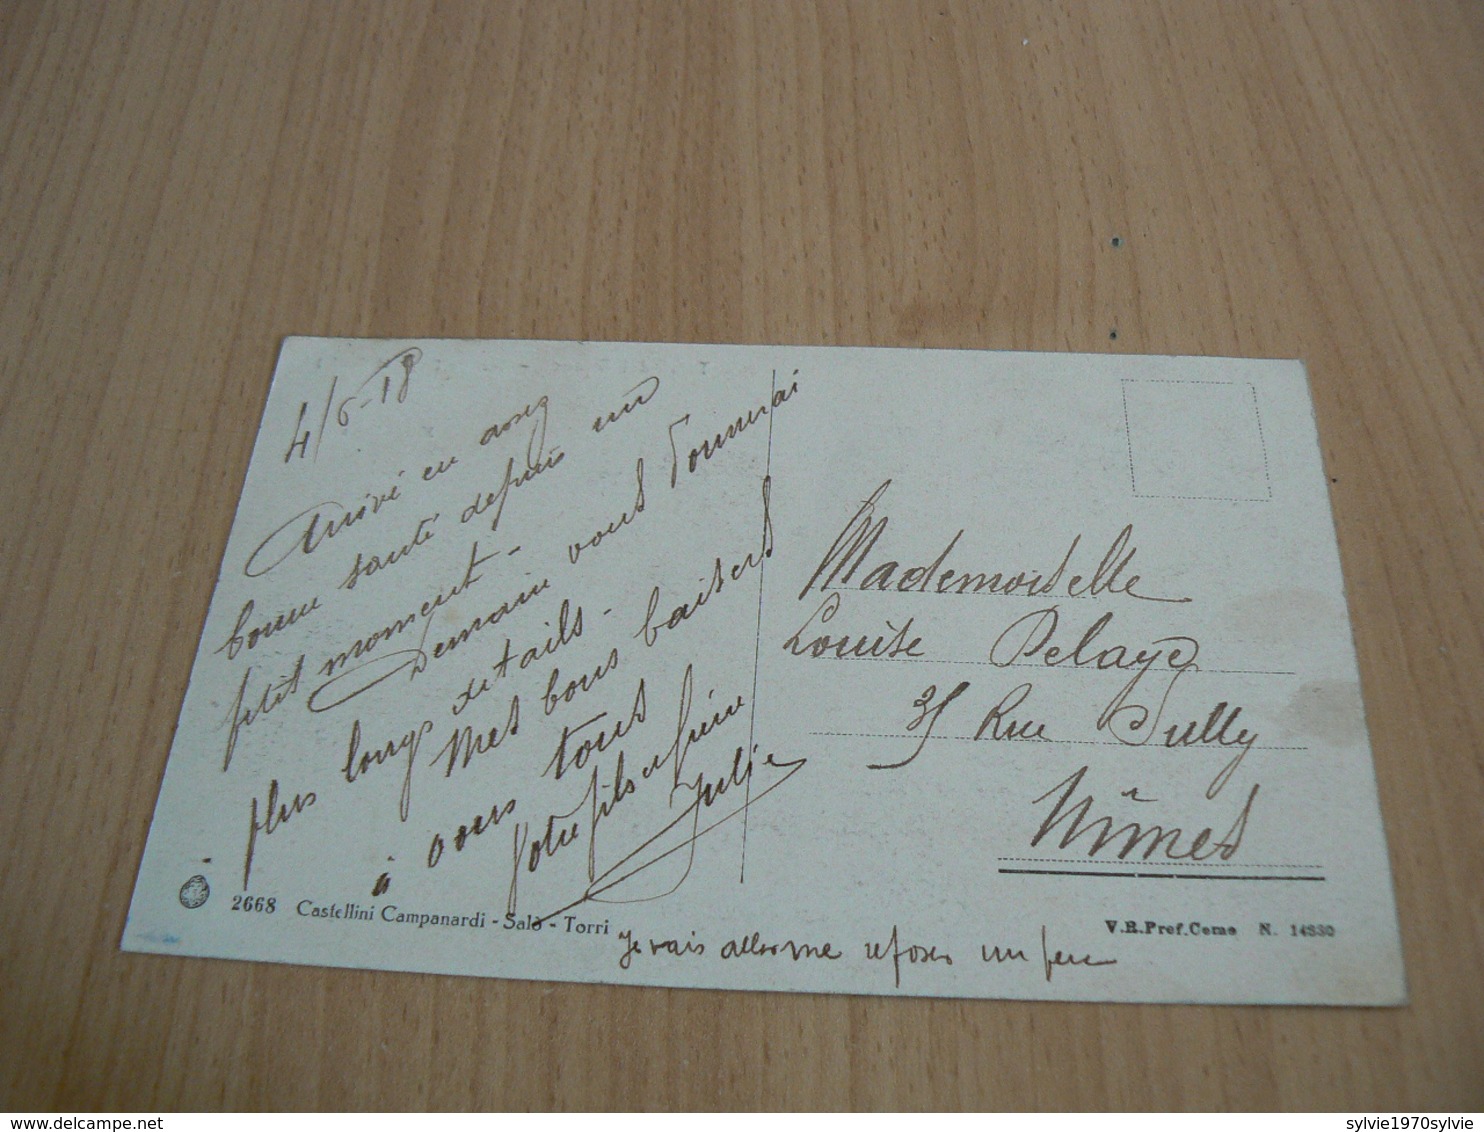 4/6-18
Arrivé en assez
bonne santé depuis un
petit moment -
Demain vous donnerai
plus longs details -
Mes bons baisers
à vous tous
Votre fils et frère
Julie
Je vais aller me reposer un peu
Mademoiselle
Louise Pelaye
Rue Sully
Nîmes
2668 Castellini Campanardi - Salò - Torri
V.R.Pref.Como N. 14330
sylvie1970sylvie
delcampe.net